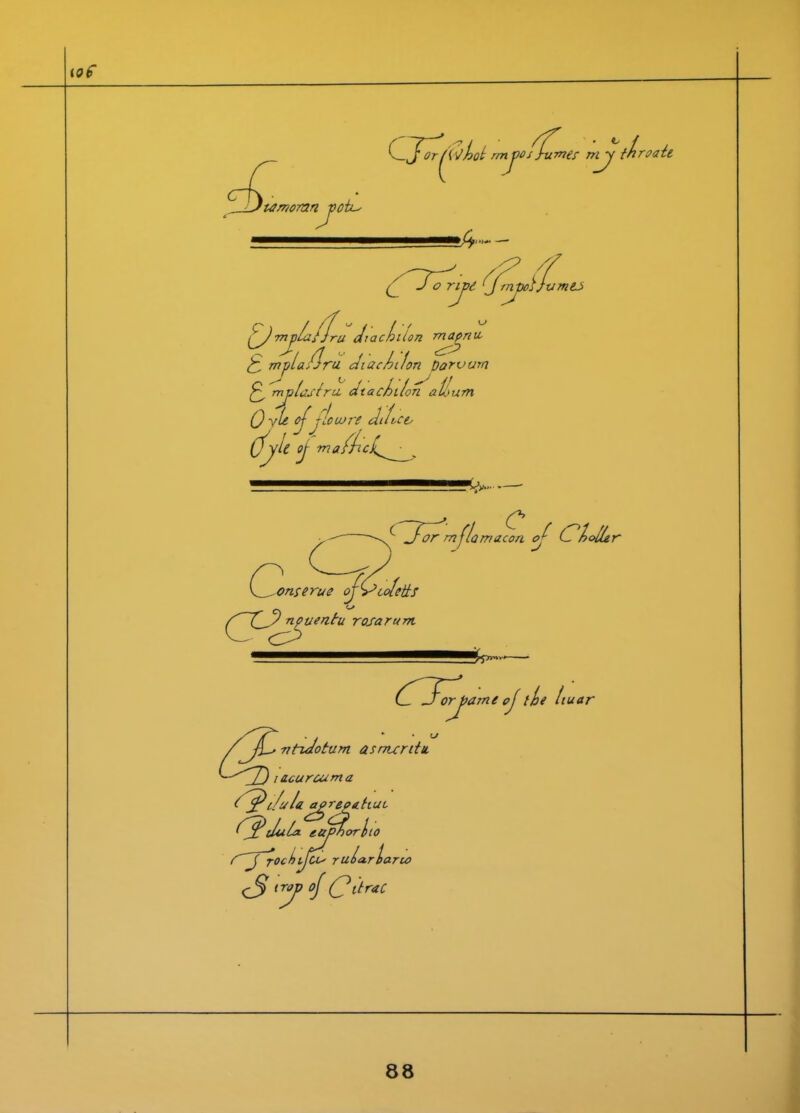 106
For whot imposumes in yͤ throate
Diamoron
To ripe Imposumes
Emplastrū diachilon magnū
Emplastrū diachilon parvum
Emplastrū diachilon album
Oyle of flowre dilice
Oyle of mastick
For inflamacon of Choller
Conserue of violetts
Unguentū rosarum
For paine of the liuar
Antidotum asincritū
Diacurcuma
Pilula agregatiui
Pilula euphorbio
Trochisci rubarbario
Sirop of Citrac
88